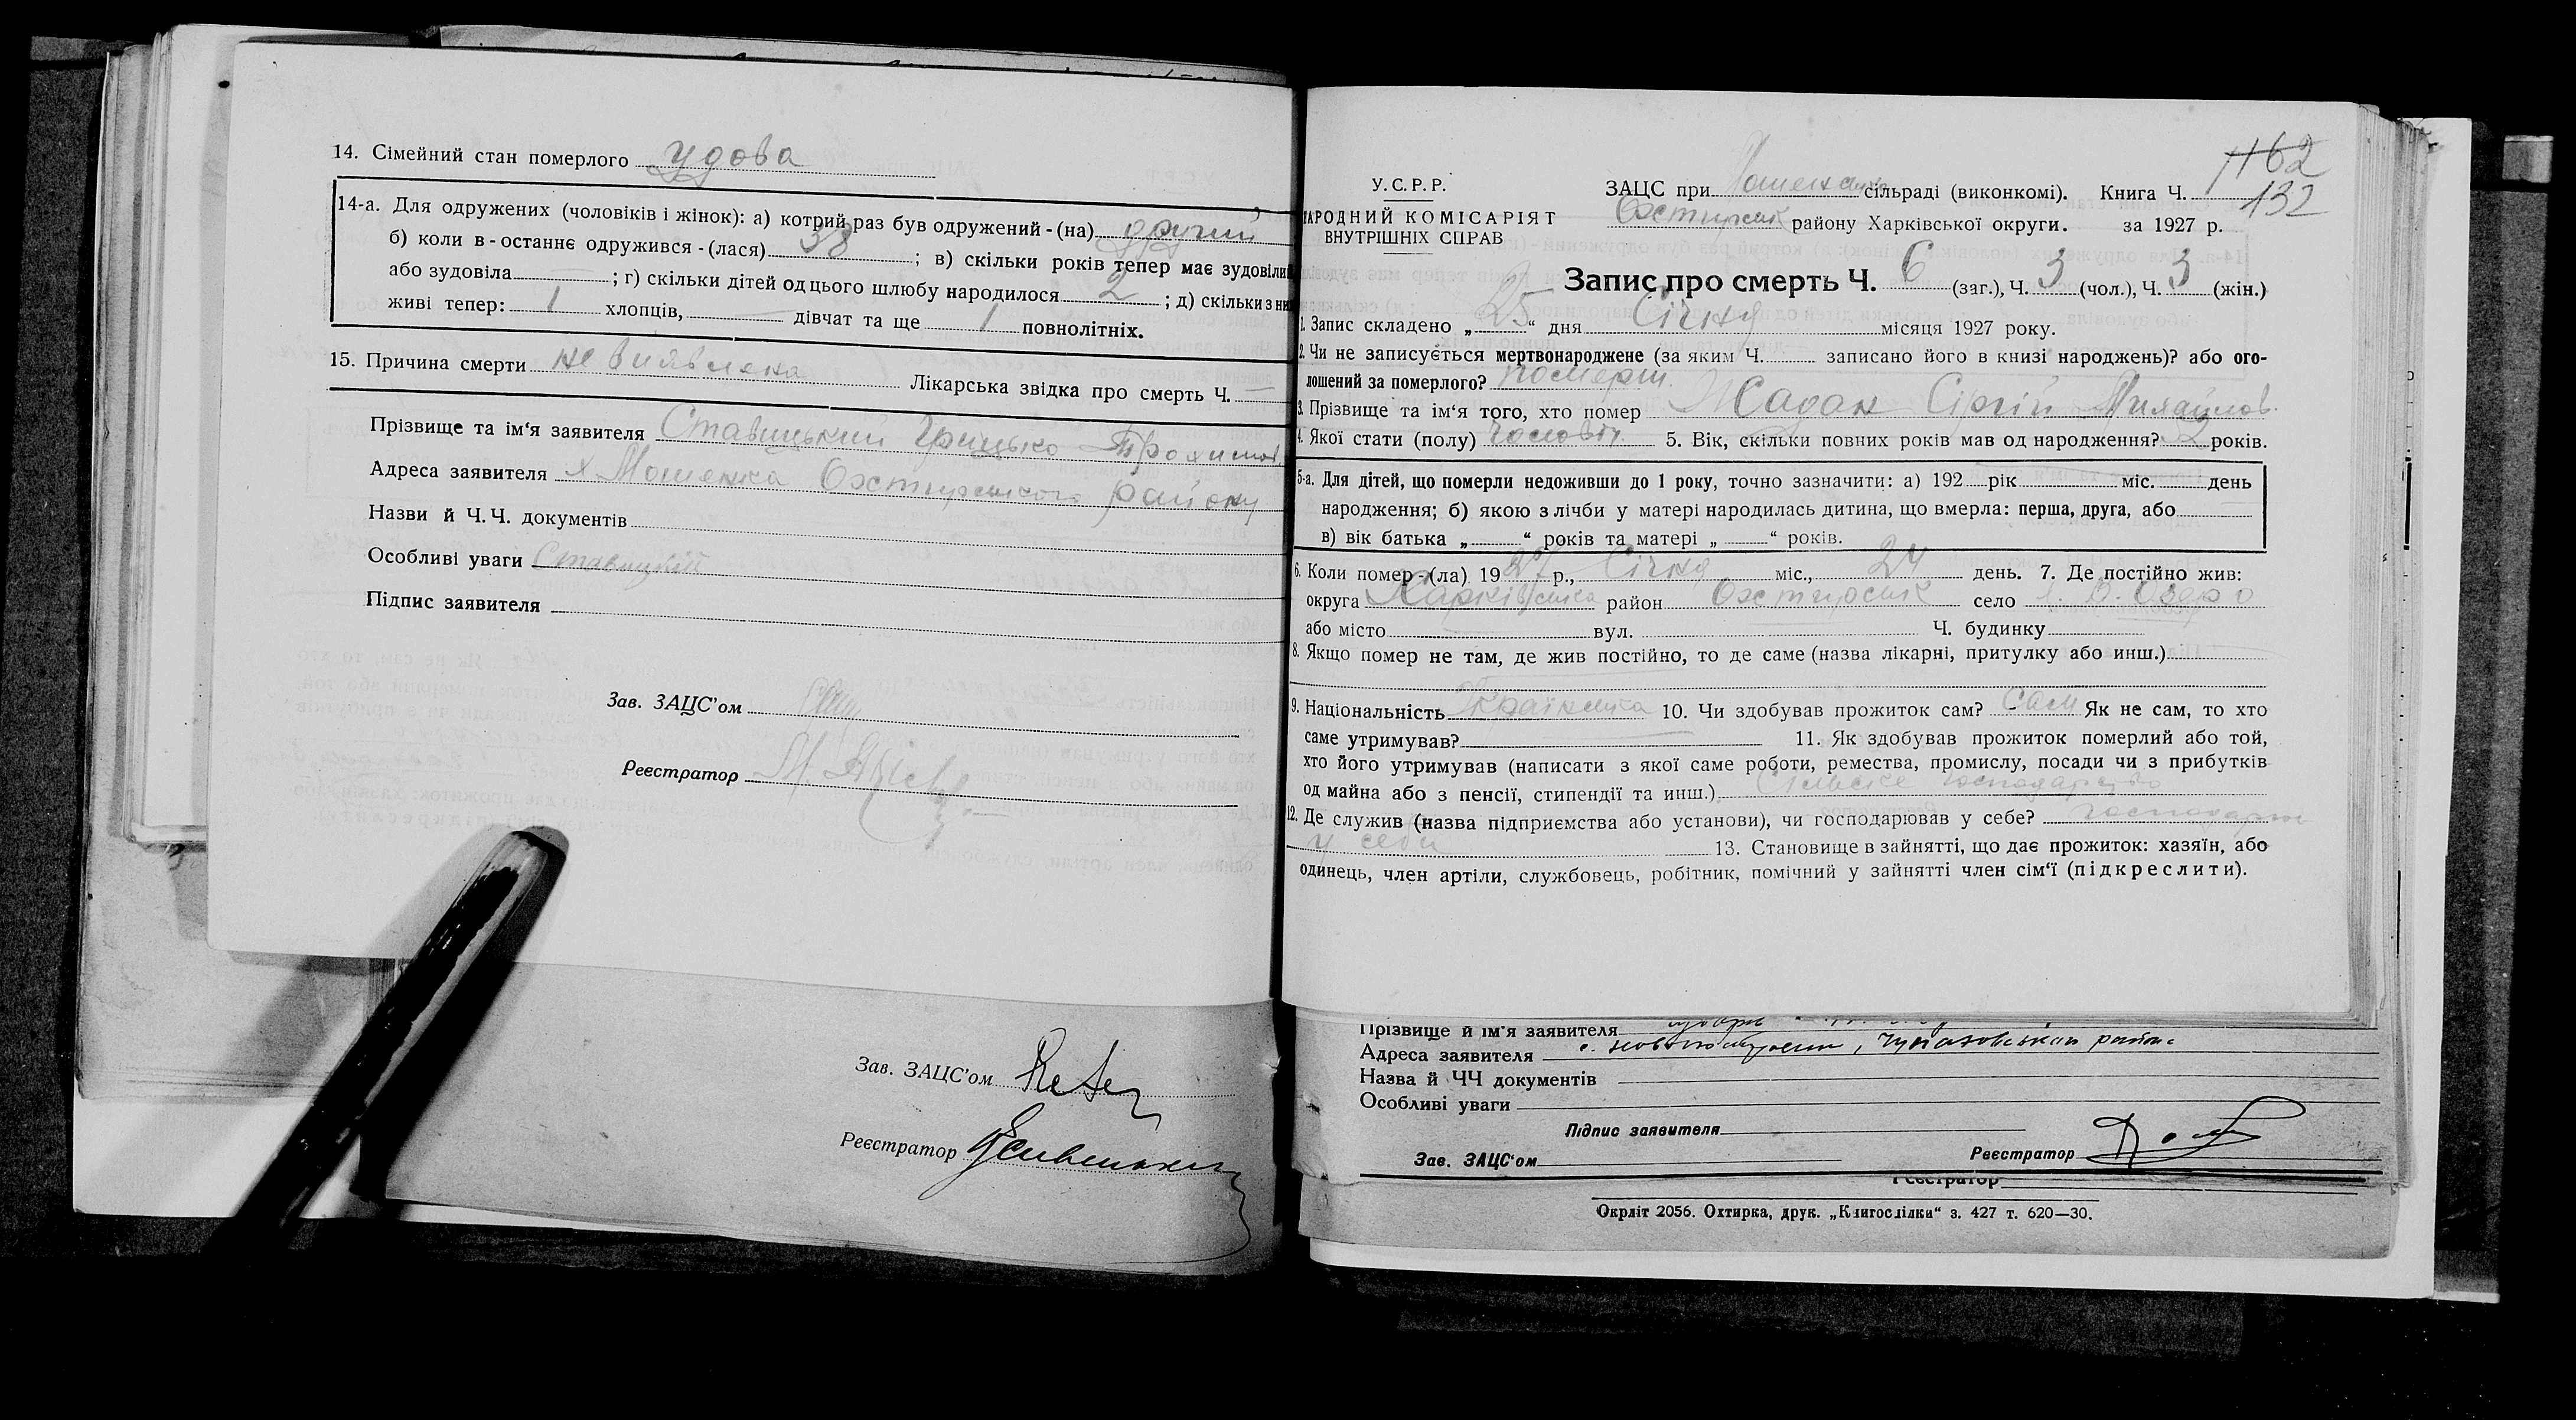 14. Сімейний стан померлого удова
14-а. Для одружених (чоловіків і жінок): а) котрий раз був одружений - (на) другий
б) коли в - останнє одружився - (лася) 38 ; в) скільки років тепер має зудовіли
або зудовіла ; г) скільки дітей од цього шлюбу народилося 2 ; д) скільки з них
живі тепер: 1 хлопців, дівчат та ще 1 повнолітніх.
15. Причина смерти не виявлена Лікарська звідка про смерть Ч. —
Прізвище та ім‘я заявителя Ставицький Грицько
Адреса заявителя х Мошенка Охтирського району
Назви й Ч.Ч. документів
Особливі уваги Ставицкий
Підпис заявителя
Зав. ЗАЦС’ом
Реєстратор
Зав. ЗАЦС’ом
Реєстратор
1162
У.С.Р.Р.
НАРОДНИЙ КОМІСАРІЯТ
ВНУТРІШНІХ СПРАВ
ЗАЦС при сільраді (виконкомі). Книга Ч. 132
Охтирськ району Харківської округи. за 1927 р.
Запис про смерть Ч. 6 (заг.), Ч. 3 (чол.), Ч. 3 (жін.)
1. Запис складено „ 25 “ дня Січня місяця 1927 року.
2. Чи не записується мертвонароджене (за яким Ч. записано його в книзі народжень)? або ого-
лошений за померлого? померш.
3. Прізвище та ім‘я того, хто помер Жадан Сіргій Михайлов.
4. Якої стати (полу) Чоловіч 5. Вік, скільки повних років мав од народження? років.
5-а. Для дітей, що померли недоживши до 1 року, точно зазначити: а) 192 рік міс. день
народження; б) якою з лічби у матері народилась дитина, що вмерла: перша, друга, або
в) вік батька „ “ років та матері „ “ років.
6. Коли помер - (ла) 1927 р., Січня міс., 24 день. 7. Де постійно жив:
округа Харківська район Охтирськ село В. Озеро
або місто вул. Ч. будинку
8. Якщо помер не там, де жив постійно, то де саме (назва лікарні, притулку або инш.)
9. Національність Українська 10. Чи здобував прожиток сам? Сам Як не сам, то хто
саме утримував? 11. Як здобував прожиток померлий або той,
хто його утримував (написати з якої саме роботи, ремества, промислу, посади чи з прибутків
од майна або з пенсії, стипендії та инш.) сільське господарство
12. Де служив (назва підприємства або установи), чи господарював у себе? господарюв
у себе 13. Становище в зайнятті, що дає прожиток: хазяїн, або
одинець, член артіли, службовець, робітник, помічний у зайнятті член сім‘ї (підкреслити).
Прізвище й ім‘я заявителя
Адреса заявителя с. району
Назва й ЧЧ документів
Особливі уваги
Підпис заявителя
Зав. ЗАЦС‘ом Реєстратор
Реєстратор
Окрліт 2056. Охтирка, друк. „Книгоспілки“ з. 427 т. 620—30.